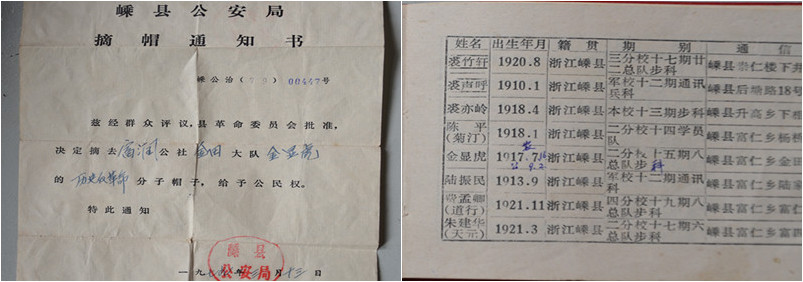 嵊县公安局
摘帽通知书
嵊公治(79)00447号
兹经群众评议,县革命委员会批准,
决定摘去富润公社金田大队金显虎
的历史反革命分子帽子,给予公民权。
特此通知
嵊县
公安局
一九七九年三月十三日
姓名 出生年月 籍贯 期别 通信
裘竹轩 1920.8 浙江嵊县 二分校十七期廿二总队步科 嵊县崇仁楼下井
裘声呼 1910.1 浙江嵊县 军校十二期通讯兵科 嵊县后塘路18号
裘亦岭 1918.4 浙江嵊县 本校十三期步科 嵊县升高乡下
陈平(菊汀) 1918.1 浙江嵊县 二分校十四学员队 嵊县富仁乡杨
金显虎 1917.7 浙江嵊县 二分校十五期八总队步科 嵊县富仁乡金田
陆振民 1913.9 浙江嵊县 军校十二期通讯科 嵊县富仁乡陆家
孟卿(道行) 1921.11 浙江嵊县 四分校十九期八总队步科 嵊县富仁乡富
朱建华(天元) 1921.3 浙江嵊县 二分校十七期六总队步科 嵊县富仁乡富四